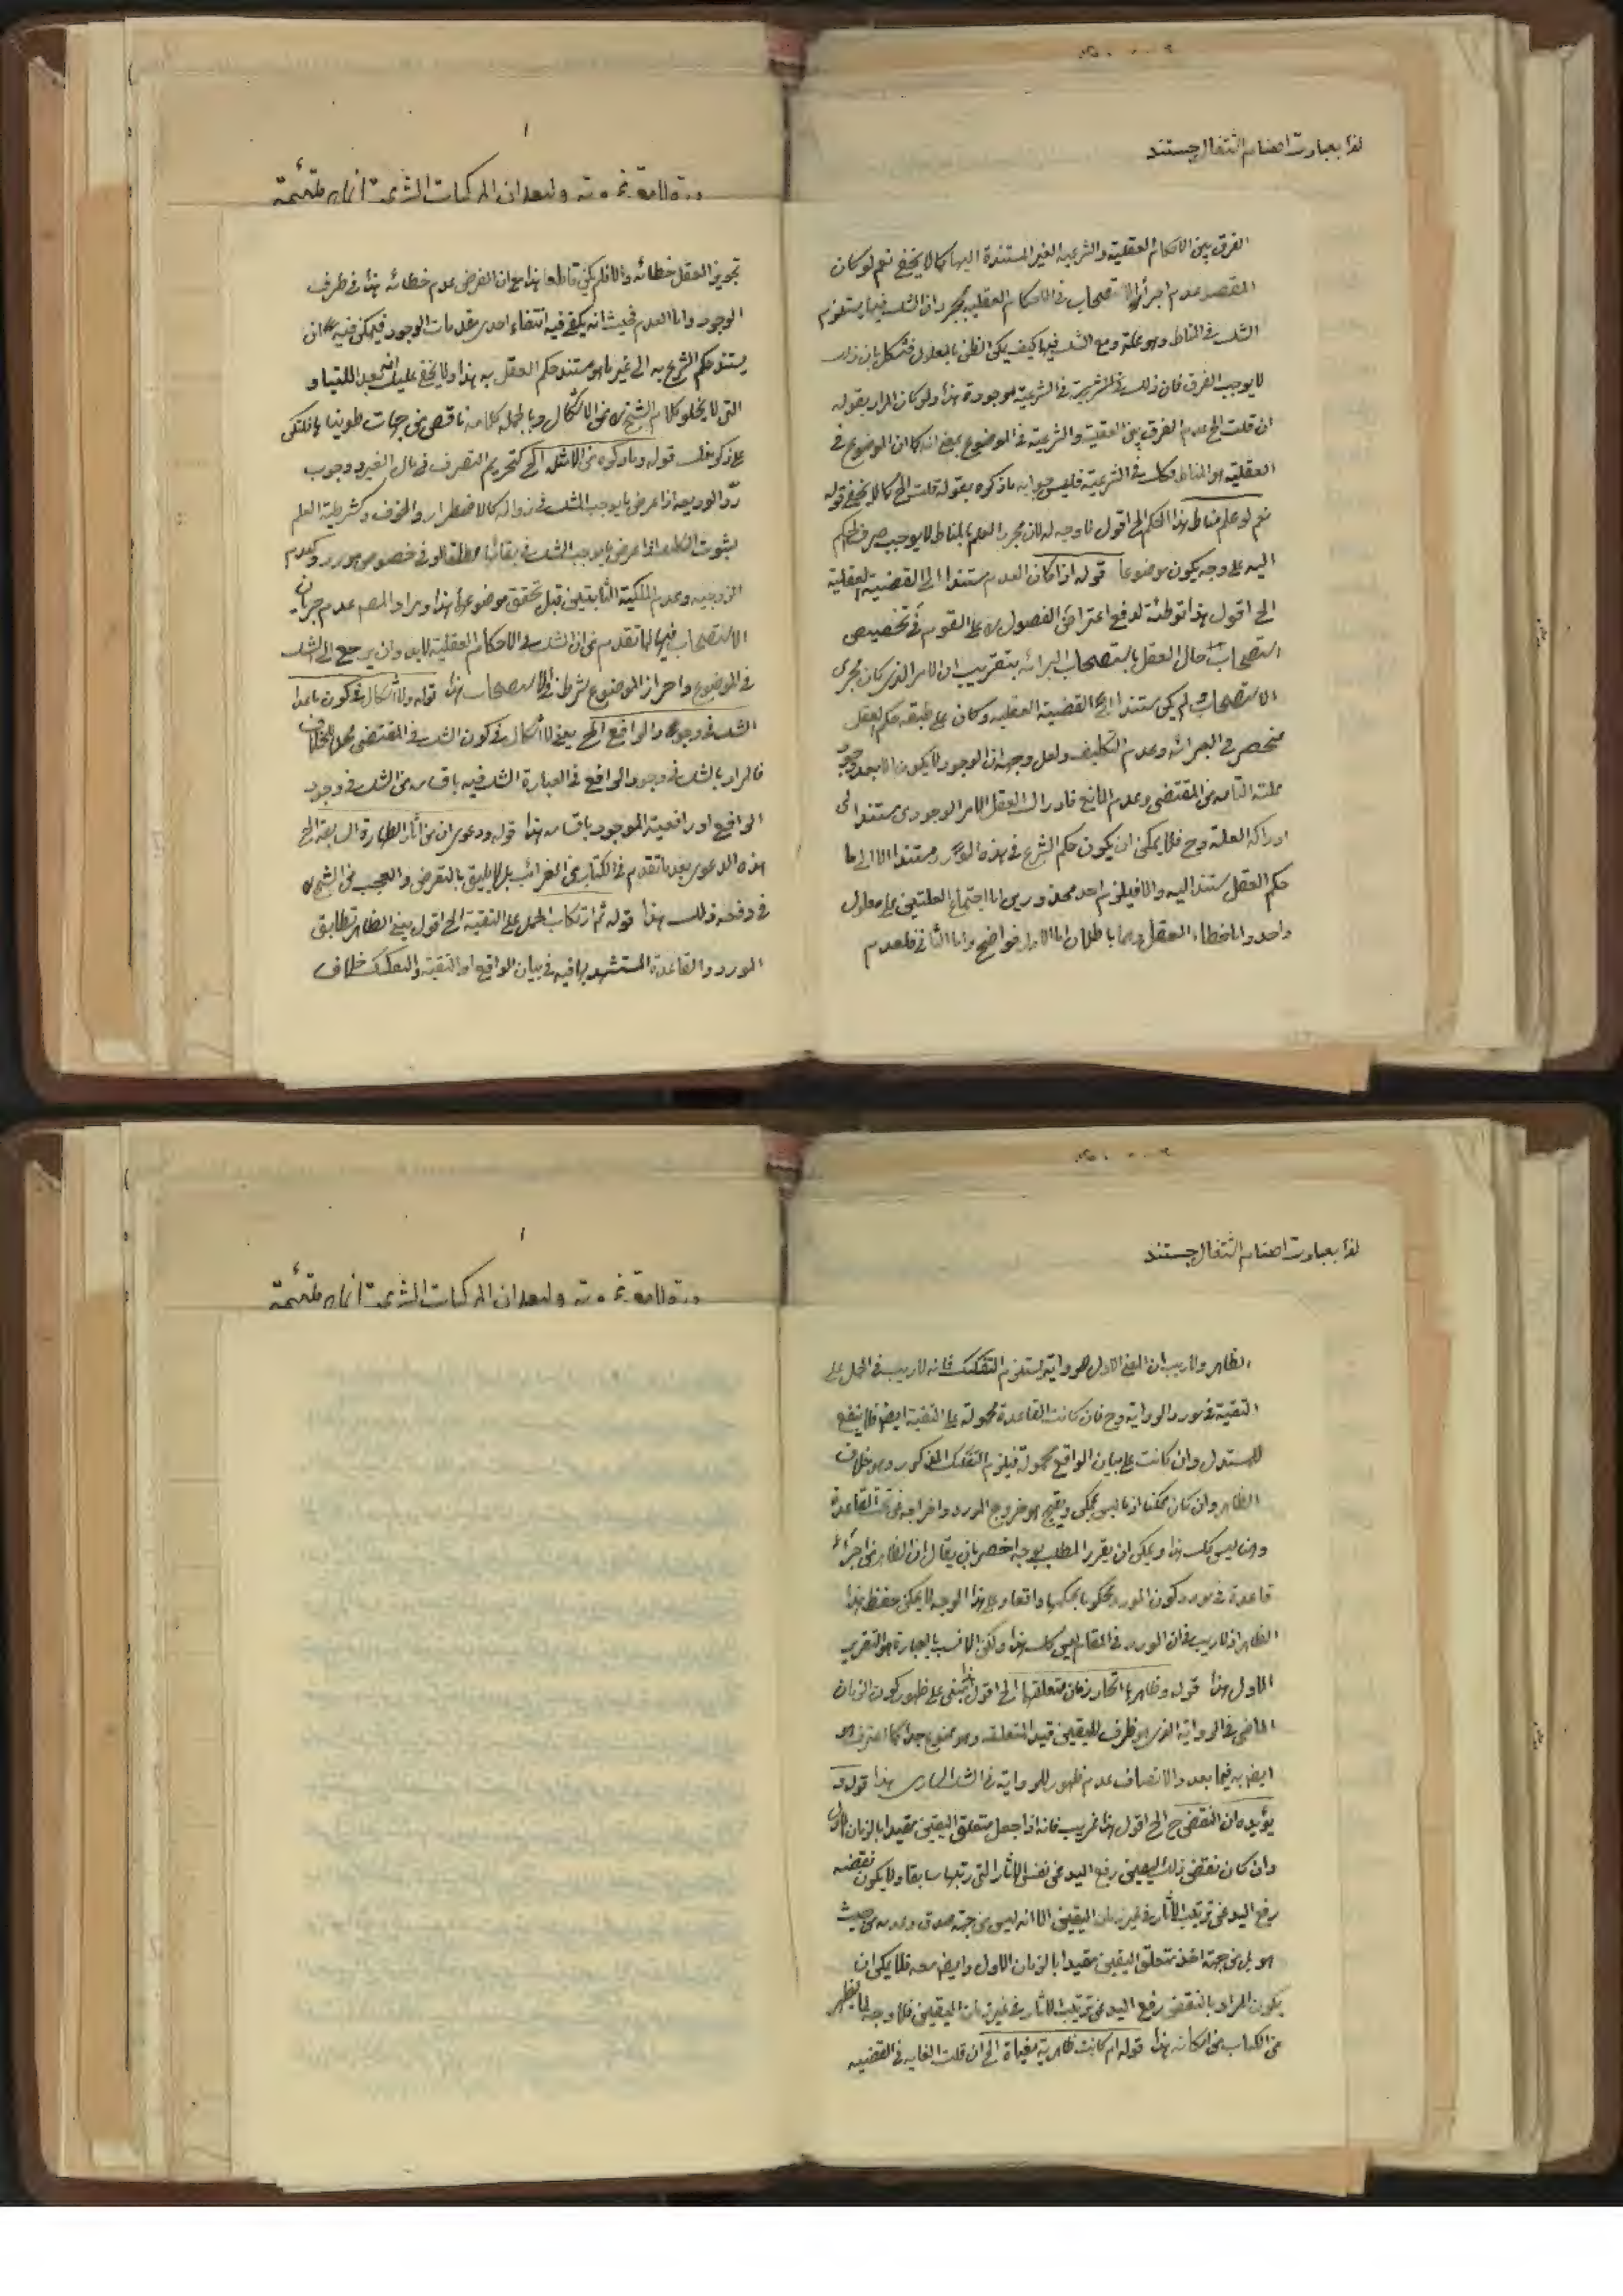 لذا بعبارت اصنام الثقال جستند
الفرق بين الاحكام العقلية والشرعية الغير المستندة اليها كما لا يخفى نعم لو كان
المقصد عدم اجراء الاستصحاب فى الاحكام العقلية بمجرد ان الشك فيها يستلزم
الشك فى المناط وهو علته ومع الشك فيها كيف يكن الظن بالمعلول فشكل بان
لا يوجب الفرق فان ذلك فى الشرعية موجودة هذا ولو كان المراد بقوله
ان قلت الخ عدم الفرق بين العقلية والشرعية فى الموضوع بمعنى انه كما ان الموضوع فى
العقلية هو المناط فكك فى الشرعية فليس جوابه ما ذكره بقوله قلت الخ كما لا يخفى قوله
نعم لو علم مناط هذا الحكم الخ اقول لا وجه له لان مجرد العلم بالمناط لا يوجب صرف الحكم
اليه على وجه يكون موضوعا قوله اذا كان العدم مستندا الى القضية العقلية
الخ اقول هذا توطئة لدفع اعتراض الفصول على القوم فى تخصيص
استصحاب حال العقل باستصحاب البرائه بتقريب ان الامر الذى كان مجرى
الاستصحاب لم يكن مستندا الى القضية العقلية وكان على طبقه حكم العقل
منحصر فى البرائه وعدم التكليف ولعل وجهه ان الوجود لا يكون الا بعد وجود
علته التامه من المقتضى وعدم المانع فادراك العقل الامر الوجودى مستند الى
ادراكه العلة وح فلا يمكن ان يكون حكم الشرع فى هذه الموارد مستندا الا الى ما
حكم العقل مستند اليه والا فيلزم احد محذورين اما اجتماع العلتين على معلول
واحد واما خطاء العقل وهما باطلان اما الاول فواضح واما الثانى فلعدم
وليعد ان المركبات الشرعية
تجويز العقل خطائه والا فلم يكن قاطعا هذا مع ان الفرض عدم خطائه هذا فى طرف
الوجود واما العدم فحيث انه يكفى فيه انتفاء احدى مقدمات الوجود فيمكن فيه ان
يستند حكم الشرع به الى غير ما هو مستند حكم العقل به هذا ولا يخفى عليك انه بعد اللتيا و
التى لا يخلو كلام الشيخ من الاشكال وبالجملة كلامه ناقص من جهات طوينا
على ذكر قوله وما ذكره من الامثله الخ كتحريم التصرف فى مال الغير ووجوب
رد الوديعه اذا عرض ما يوجب الشك فى زواله كالاضطرار والخوف وكشرطية العلم
بثبوت التكليف اذا عرض ما يوجب الشك فى بقائها مطلقا او فى خصوص مورد وكعدم
الزوجيه وعدم الملكية الثابتين قبل تحقق موضوعهما هذا ومراد المص عدم جريان
الاستصحاب فيها لما تقدم من ان الشك فى الاحكام العقلية لابد وان يرجع الى الشك
فى الموضوع واحراز الموضوع شرط فى الاستصحاب هذا قوله ولا اشكال فى كون ما عدا
الشك فى وجود الرافع الخ يعنى لا اشكال فى كون الشك فى المقتضى محلا للخلاف
فالمراد بالشك فى وجود الرافع فى العبارة الشك فيه باقسامه من الشك فى وجود
الرافع او رافعية الموجود باقسامه هذا قوله ودعوى ان من آثار الطهارة السابقة الخ
هذه الدعوى بعد ما تقدم فى الكتاب من الغرائب بل لا يليق بالتعرض والعجب من الشيخ
فى دفعه ذلك هذا قوله ثم ارتكاب الحمل على التقية الخ اقول يعنى الظاهر تطابق
المورد والقاعدة المستشهد بها فيه فى بيان الواقع او التقية والتفكيك خلاف
لذا بعبارت اصنام الثقال جستند
الظاهر ولا ريب ان المعنى الاول للرواية يستلزم التفكيك فانه لا ريب فى الحمل على
التقية فى مورد الرواية وح فان كانت القاعدة محمولة على التقية ايضا فلا ينفع
للمستدل وان كانت على بيان الواقع محمولة فيلزم التفكيك المذكور وهو خلاف
الظاهر وان كان ممكنا اذ ما ليس يمكن ويقبح هو خروج المورد واخراجه من تحت القاعدة
وهنا ليس كك هذا ويمكن ان يقرر المطلب بوجه اخصر بان يقال ان الظاهر من اجراء
قاعدة فى مورد كون المورد محكوما بحكمها واقعا وعلى هذا الوجه لا يمكن حفظ هذا
الظاهر اذ لا ريب فى ان المورد فى المقام ليس كك هذا ولكن الانسب بالعبارة هو التقرير
الاول هذا قوله وظاهرها اتحاد زمان متعلقهما الخ اقول هذا مبنى على ظهور كون الزمان
الماضى فى الرواية الذى هو ظرف لليقين قيد المتعلقه وهو ممنوع جدا كما اعترف هو
ايضا به فيما بعد والانصاف عدم ظهور للرواية فى الشك السارى هذا قوله و
يؤيده ان النقض ح الخ اقول هذا غريب فانه اذا جعل متعلق اليقين مقيدا بالزمان الاول
وان كان نقض ذلك اليقين رفع اليد عن نفس الاثار التى رتبها سابقا ولا يكون نقضه
رفع اليد عن ترتيب الآثار فى غير زمان اليقين الا انه ليس من جهة صدق وعدمه من حيث
هو بل من جهة اخذ متعلق اليقين مقيدا بالزمان الاول وايضا معه فلا يمكن ان
يكون المراد بالنقض رفع اليد عن ترتيب الاثار فى غير زمان اليقين فلا وجه لما يظهر
من الكتاب من امكانه هذا قوله ام كانت ظاهرية مغياة الخ ان قلت الغايه فى القضيه
وليعد ان المركبات الشرعية